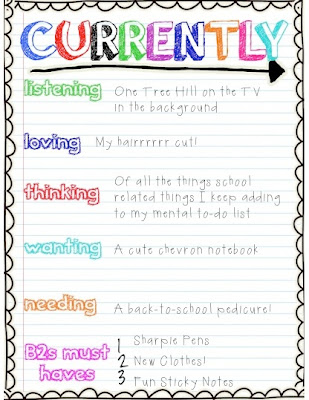 CURRENTLY
listening
One Tree Hill on the TV
in the background
loving
My hairrrrrr cut!
thinking
Of all the things school
related things I keep adding
to my mental to-do list
wanting
A cute chevron notebook
needing
A back-to-school pedicure!
B2s must
haves
1 Sharpie Pens
2 New Clothes!
3 Fun Sticky Notes